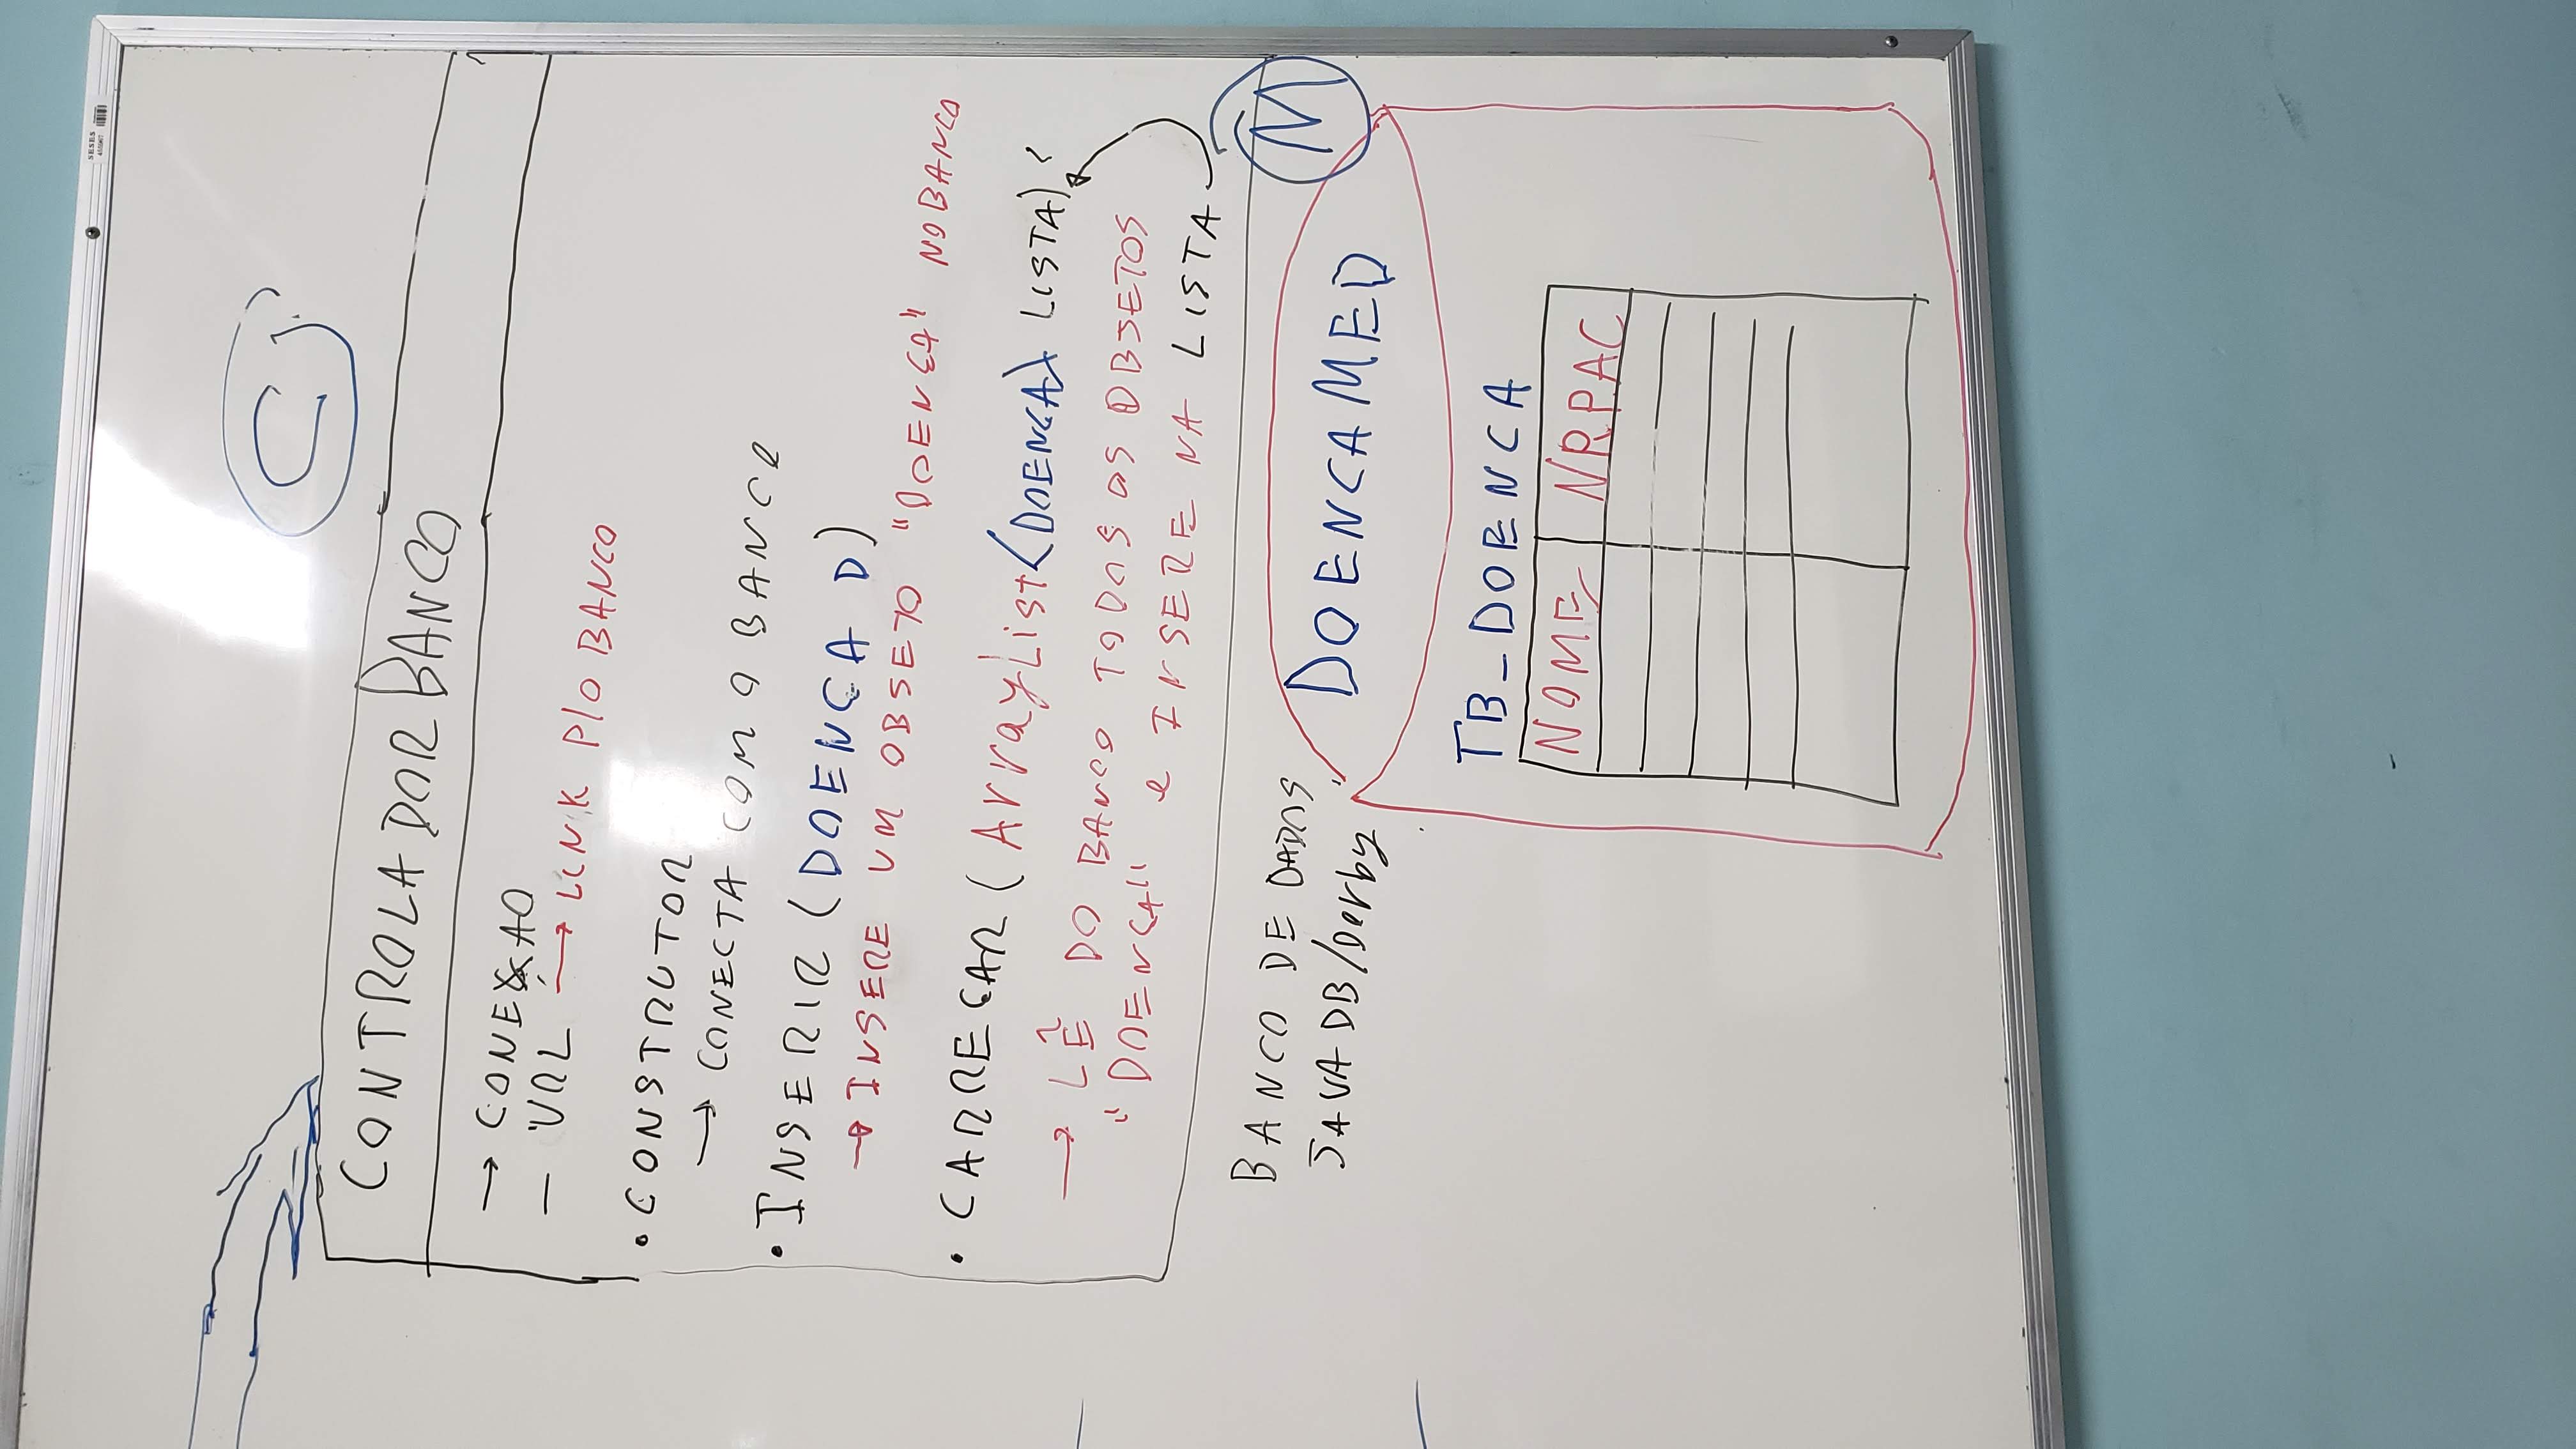 SESES
C
CONTROLADORBANCO
→ CONEXAO
— URL → LINK P/O BANCO
• CONSTRUTOR
→ CONECTA COM O BANCO
• INSERIR (DOENCA D)
→ INSERE UM OBJETO "DOENCA" NO BANCO
• CARREGAR (ArrayList<DOENCA> LISTA)
→ LÊ DO BANCO TODOS OS OBJETOS
"DOENCA" e INSERE NA LISTA
BANCO DE DADOS
JAVADB/Derby
M
DOENCAMED
TB_DOENCA
NOME NRPAC